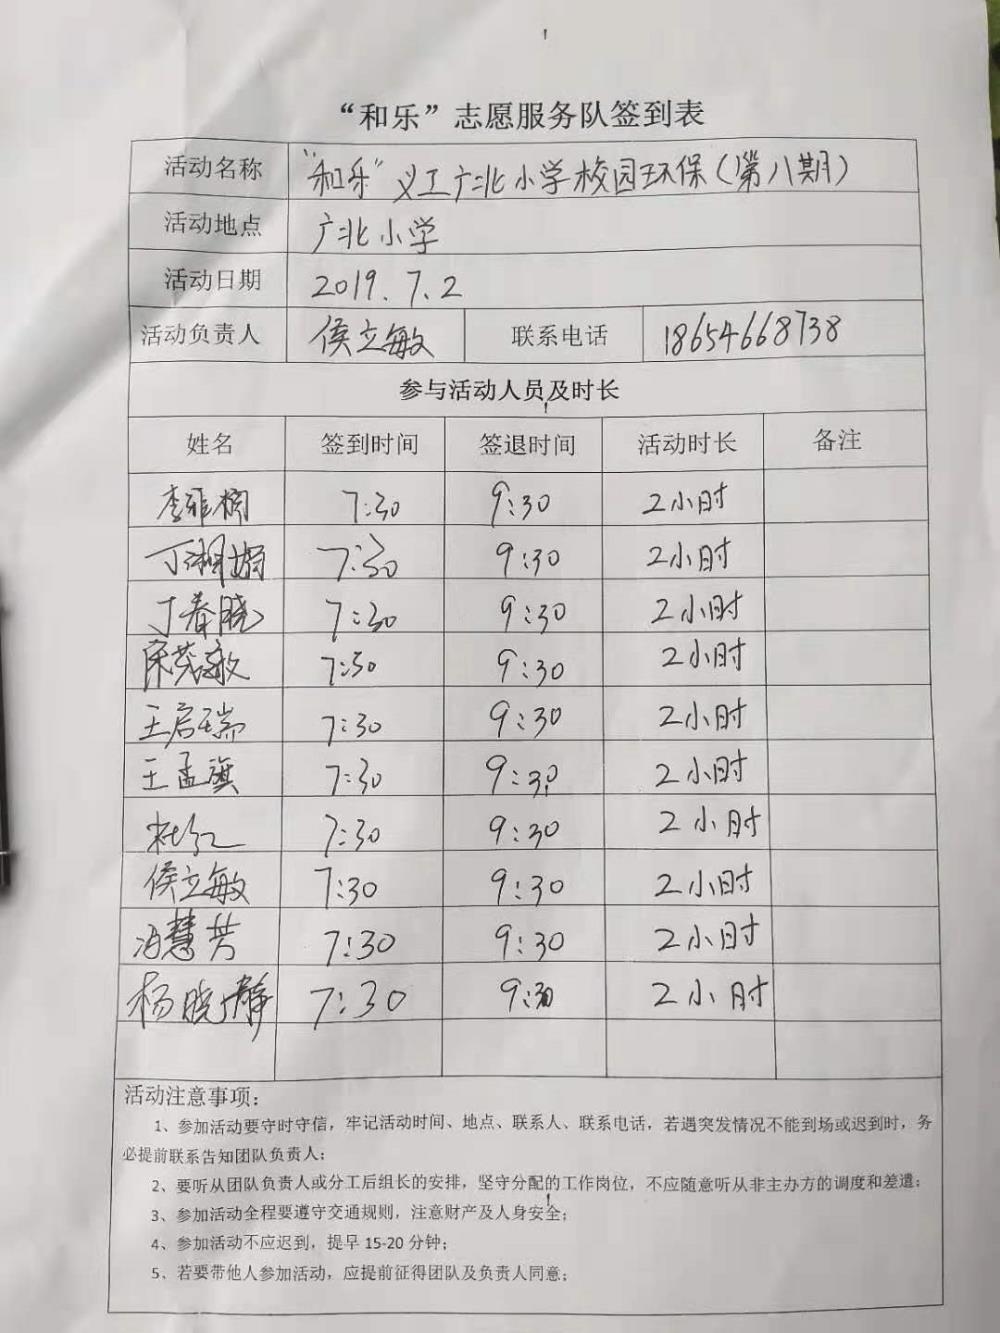 “和乐”志愿服务队签到表
活动名称 “和乐”义工广北小学校园环保(第八期)
活动地点 广北小学
活动日期 2019.7.2
活动负责人 侯立敏 联系电话 18654668738
参与活动人员及时长
姓名 签到时间 签退时间 活动时长 备注
李雅楠 7:30 9:30 2小时
丁湘娟 7:30 9:30 2小时
丁春晓 7:30 9:30 2小时
宋茂敏 7:30 9:30 2小时
王启瑞 7:30 9:30 2小时
王孟旗 7:30 9:30 2小时
杜红 7:30 9:30 2小时
侯立敏 7:30 9:30 2小时
冯慧芳 7:30 9:30 2小时
杨晓静 7:30 9:30 2小时
活动注意事项:
1、参加活动要守时守信，牢记活动时间、地点、联系人、联系电话，若遇突发情况不能到场或迟到时，务
必提前联系告知团队负责人;
2、要听从团队负责人或分工后组长的安排，坚守分配的工作岗位，不应随意听从非主办方的调度和差遣;
3、参加活动全程要遵守交通规则，注意财产及人身安全;
4、参加活动不应迟到，提早 15-20 分钟;
5、若要带他人参加活动，应提前征得团队及负责人同意;